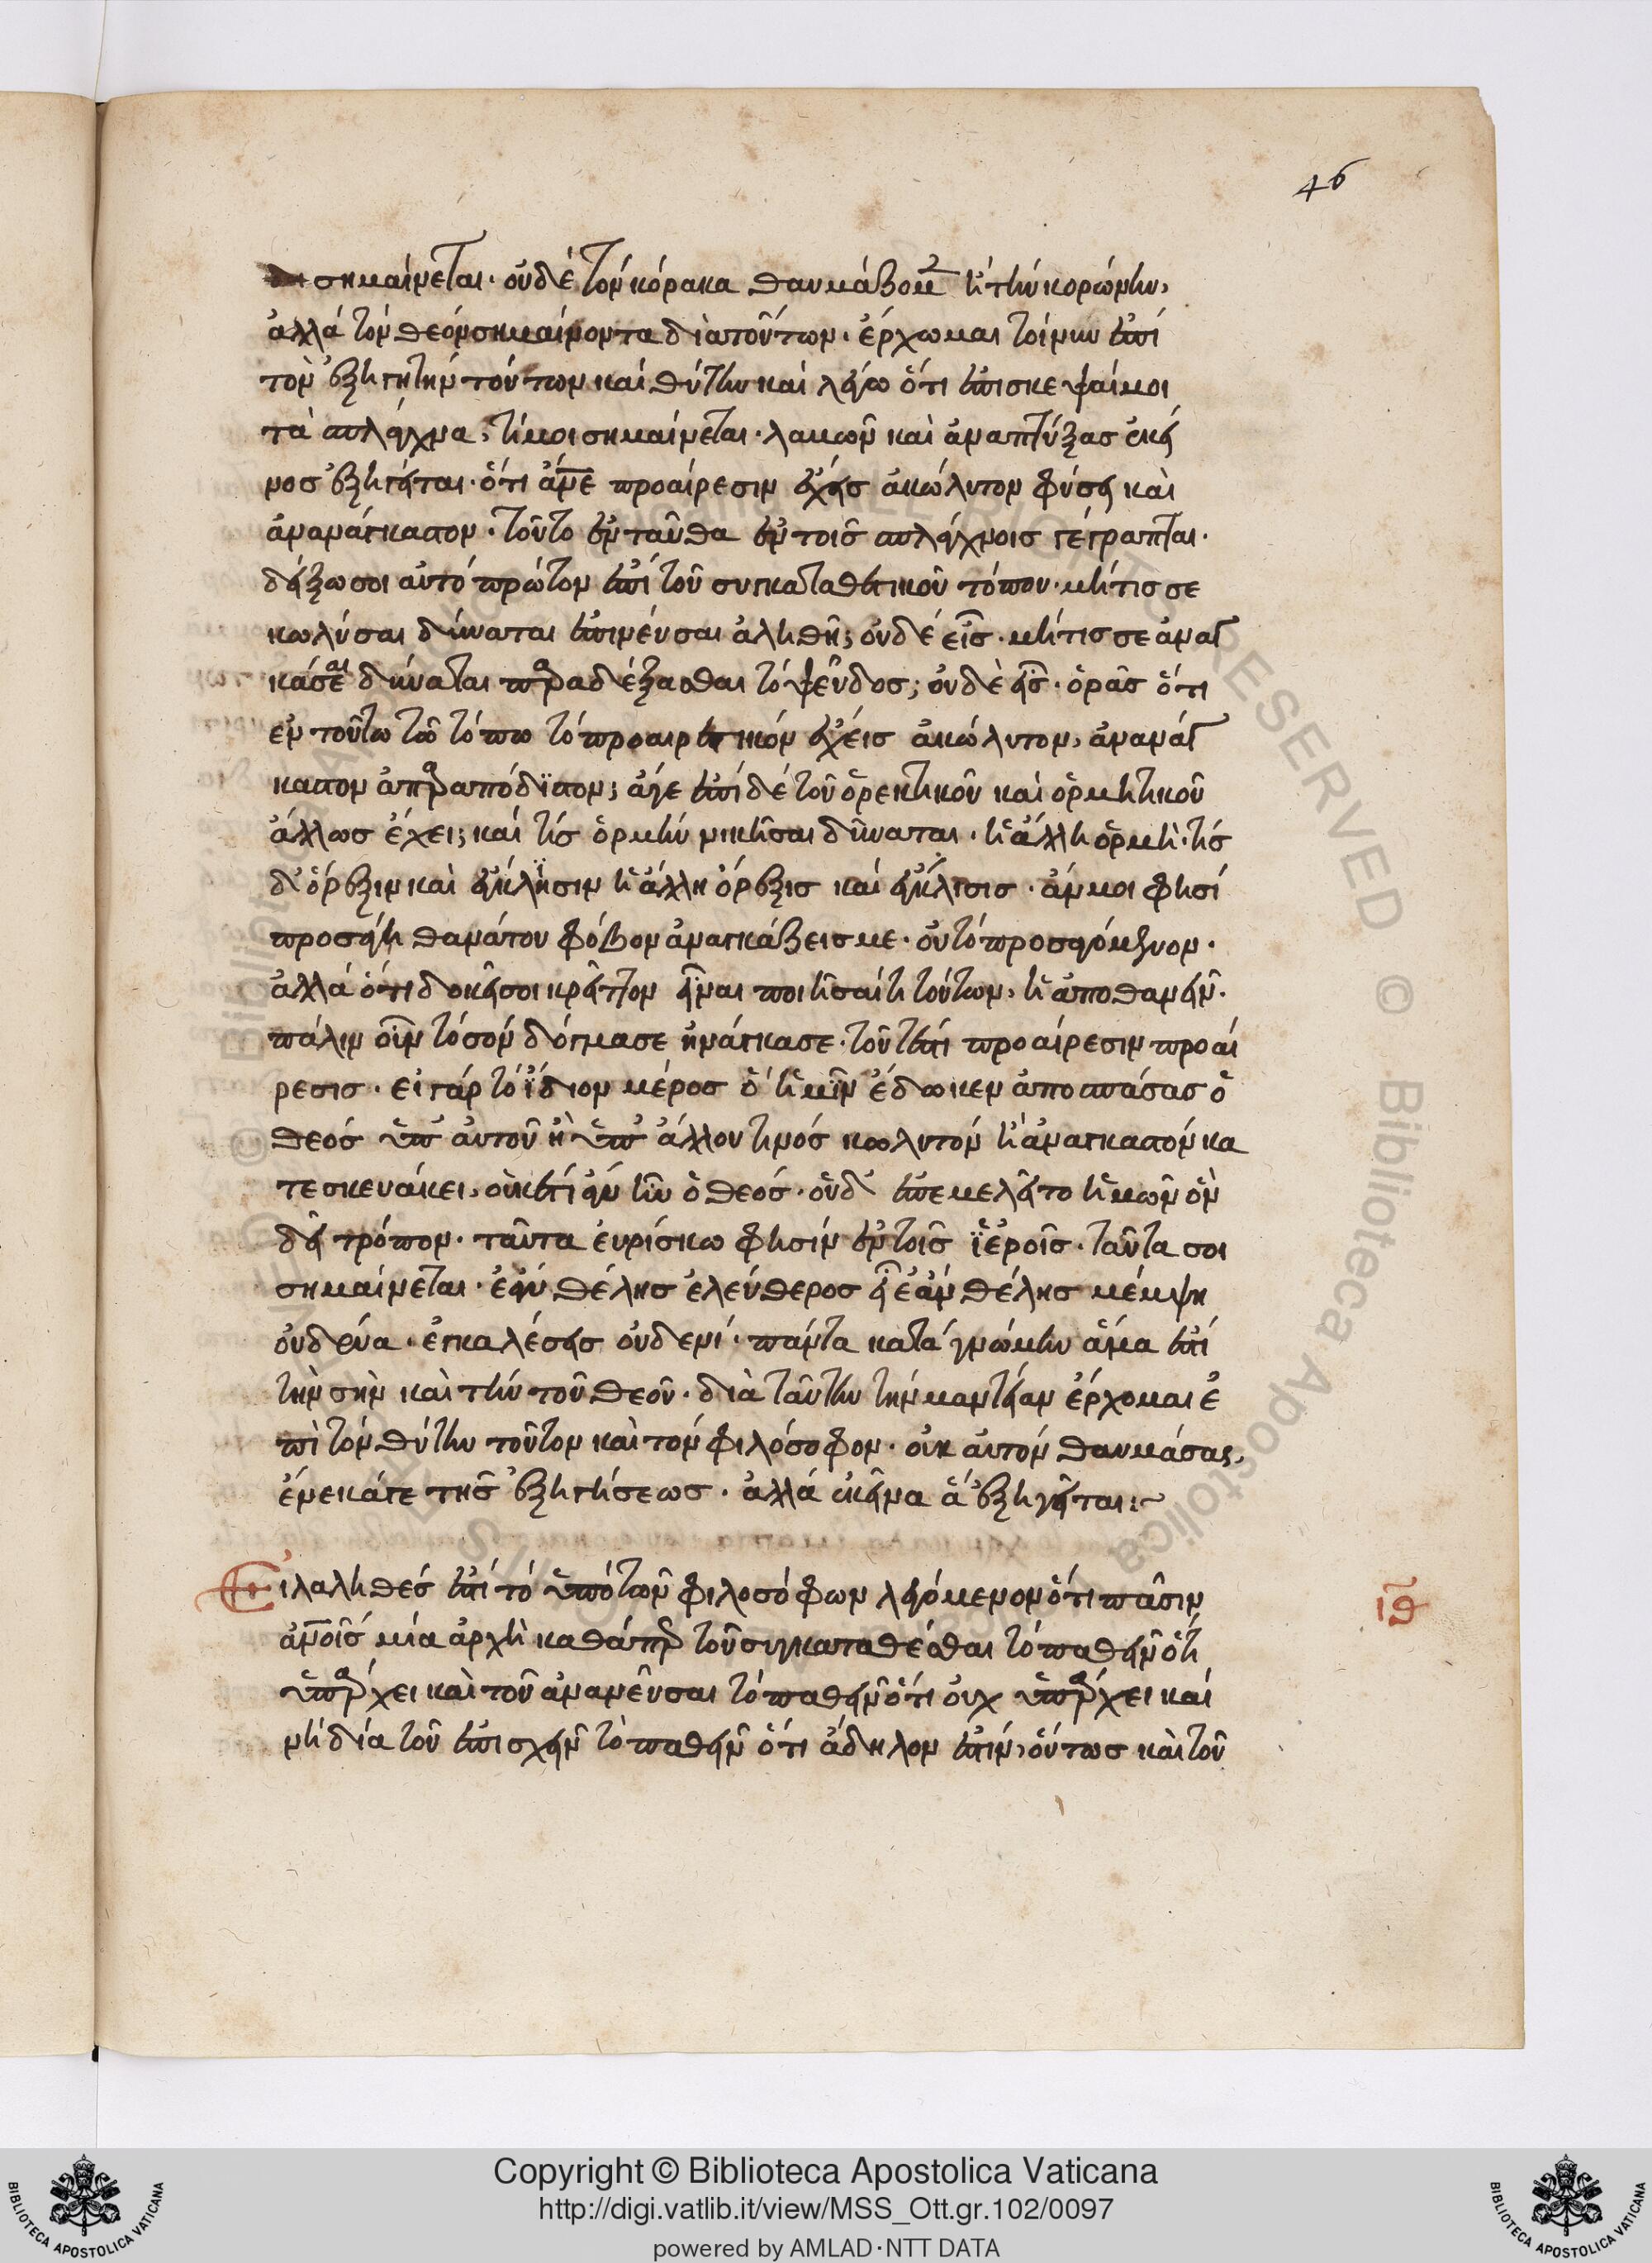 46
σημαίνεται· οὐδὲ τὸν κόρακα θαυμάζομεν ἢ τὴν κορώνην,
ἀλλὰ τὸν θεὸν σημαίνοντα διὰ τούτων· ἔρχωμαι τοίνυν ἐπὶ
τὸν ἐξηγητὴν τούτων καὶ θύτην καὶ λέγω ὅτι ἐπίσκεψαί μοι
τὰ σπλάγχνα, τί μοι σημαίνεται· λαμὼν καὶ ἀναπτύξας ἐκεῖ
νος ἐξηγεῖται· ὅτι ἄνθρωπε προαίρεσιν ἔχεις ἀκώλυτον φύσει καὶ
ἀνανάγκαστον· τοῦτο ἐνταῦθα ἐν τοῖς σπλάγχνοις γέγραπται·
δείξω σοι αὐτὸ πρῶτον ἐπὶ τοῦ συγκαταθετικοῦ τόπου· μή τις σε
κωλῦσαι δύναται ἐπινεῦσαι ἀληθῆ; οὐδὲ εἷς· μή τις σε ἀναγ
κάσαι δύναται παραδέξασθαι τὸ ψεῦδος; οὐδὲ εἷς· ὁρᾷς ὅτι
ἐν τούτω τῶ τόπω τὸ προαιρετικὸν ἔχεις ἀκώλυτον, ἀνανάγ
καστον ἀπαραπόδιστον; ἄγε ἐπὶ δὲ τοῦ ὀρεκτικοῦ καὶ ὁρμητικοῦ
ἄλλως ἔχει; καὶ τίς ὁρμὴν νικῆσαι δύναται· ἢ ἄλλη ὁρμὴ· τίς
δ' ὄρεξιν καὶ ἔκκλησιν ἢ ἄλλη ὄρεξις καὶ ἔκκλισις· ἄν μοι φησί
προσάγη θανάτου φόβον ἀναγκάζεις με· οὐ τὸ προσαγόμενον·
ἀλλὰ ὅτι δοκεῖ σοι κρεῖττον εἶναι ποιῆσαί τι τούτων, ἢ ἀποθανεῖν·
πάλιν οὖν τὸ σὸν δόγμα σε ἠνάγκασε· τοῦτ' ἔστι προαίρεσιν προαί
ρεσις· εἰ γὰρ τὸ ἴδιον μέρος ὃ ἡμῖν ἔδωκεν ἀποσπάσας ὁ
θεὸς ὑπ' αὐτοῦ ἢ ὑπ' ἄλλου τινὸς κωλυτὸν ἢ ἀναγκαστὸν κα
τεσκευάκει, οὐκέτι ἂν ἦν ὁ θεός· οὐδ' ἐπεμελεῖτο ἡμῶν ὃν
δεῖ τρόπον· ταῦτα εὑρίσκω φησὶν ἐν τοῖς ἱεροῖς· ταῦτα σοι
σημαίνεται· ἐὰν θέλης ἐλεύθερος εἶ ἐὰν θέλης μέμψη
οὐδένα· ἐγκαλέσεις οὐδενί· πάντα κατὰ γνώμην ἅμα ἔσται
τὴν σὴν καὶ τὴν τοῦ θεοῦ· διὰ ταύτην τὴν μαντείαν ἔρχομαι ἐ
πὶ τὸν θύτην τοῦτον καὶ τὸν φιλόσοφον· οὐκ αὐτὸν θαυμάσας,
ἕνεκά γε τῆς ἐξηγήσεως· ἀλλὰ ἐκεῖνα ἃ ἐξηγεῖται:~
Εἰ ἀληθές ἐστι τὸ ὑπὸ τῶν φιλοσόφων λεγόμενον ὅτι πᾶσιν
ἀνθρώποις μία ἀρχὴ καθάπερ τοῦ συγκαταθέσθαι τὸ παθεῖν ὅτι
ὑπάρχει καὶ τοῦ ἀνανεῦσαι τὸ παθεῖν ὅτι οὐχ ὑπάρχει καὶ
νὴ δία τοῦ ἐπισχεῖν τὸ παθεῖν ὅτι ἄδηλον ἐστίν, οὕτως καὶ τοῦ
ιθ
Copyright © Biblioteca Apostolica Vaticana
http://digi.vatlib.it/view/MSS_Ott.gr.102/0097
powered by AMLAD·NTT DATA
BIBLIOTECA APOSTOLICA VATICANA
BIBLIOTECA APOSTOLICA VATICANA